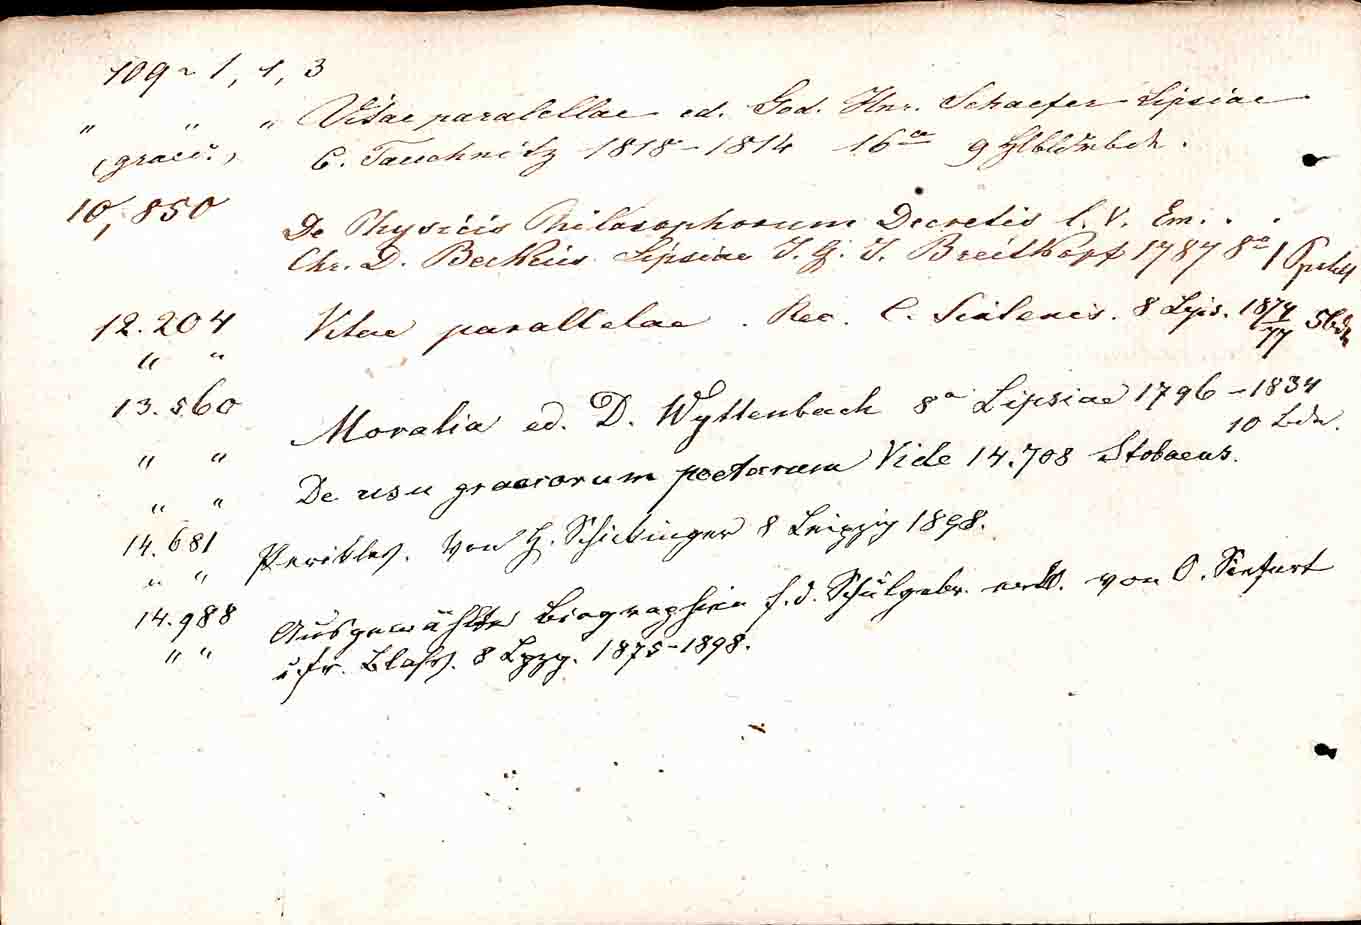 109 ~ 1, 1, 3
" " " Vitae parabellae ed. God. Hnr. Schaefer Lipsiae
(graece) C. Tauchnitz 1818-1814 16° 9 Hlbldrbde.
10,850 De Physicis Philosophorum Decretis l. V. Em. . .
Chr. D. Beckius Lipsiae I. G. I. Breitkopf 1787 8° 1
12.204 Vitae parallelae. Rec. C. Sintenis. 8 Lpz. 1874/77 5 Bde
" "
13.560 Moralia ed. D. Wyttenbach 8° Lipsiae 1796-1834
10 Bde.
" "
" " De usu graecorum poetarum Vide 14.708 Stobaeus.
14.681 Perikles. Von H. Schickinger 8 Leipzig 1898.
" "
14.988 Ausgewählte Biographien f. d. Schulgebr. erkl. von O. Siefert
" " u. Fr. Blass. 8 Lpzg. 1875-1898.